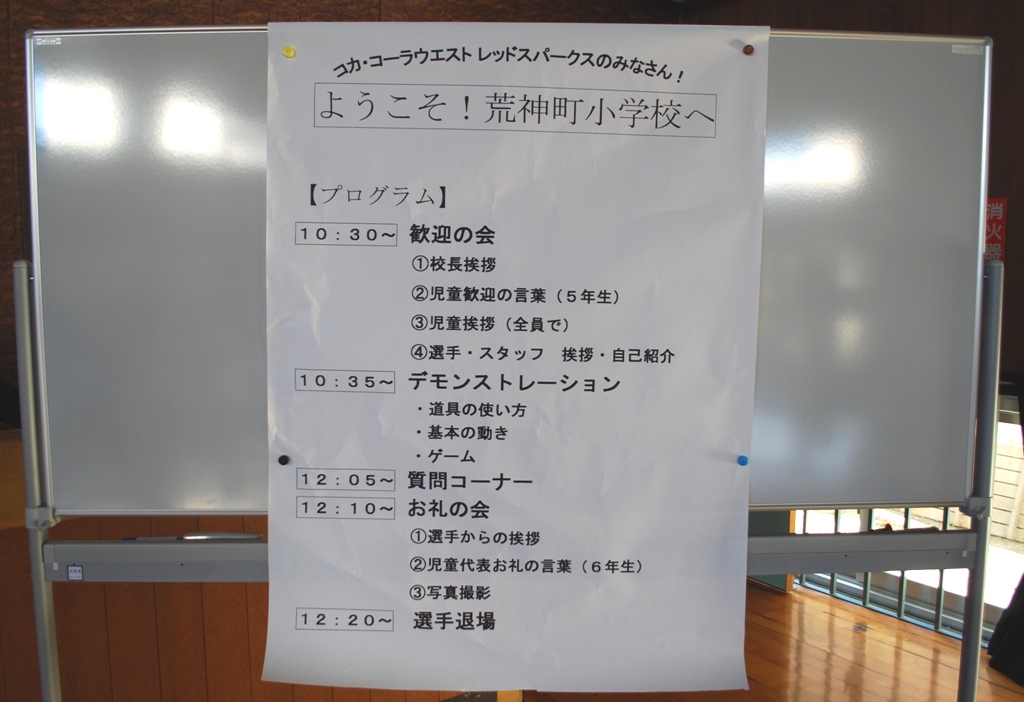 コカ・コーラウエスト レッドスパークスのみなさん！
ようこそ！荒神町小学校へ
【プログラム】
１０：３０～ 歓迎の会
①校長挨拶
②児童歓迎の言葉（５年生）
③児童挨拶（全員で）
④選手・スタッフ　挨拶・自己紹介
１０：３５～ デモンストレーション
・道具の使い方
・基本の動き
・ゲーム
１２：０５～ 質問コーナー
１２：１０～ お礼の会
①選手からの挨拶
②児童代表お礼の言葉（６年生）
③写真撮影
１２：２０～ 選手退場
消火器